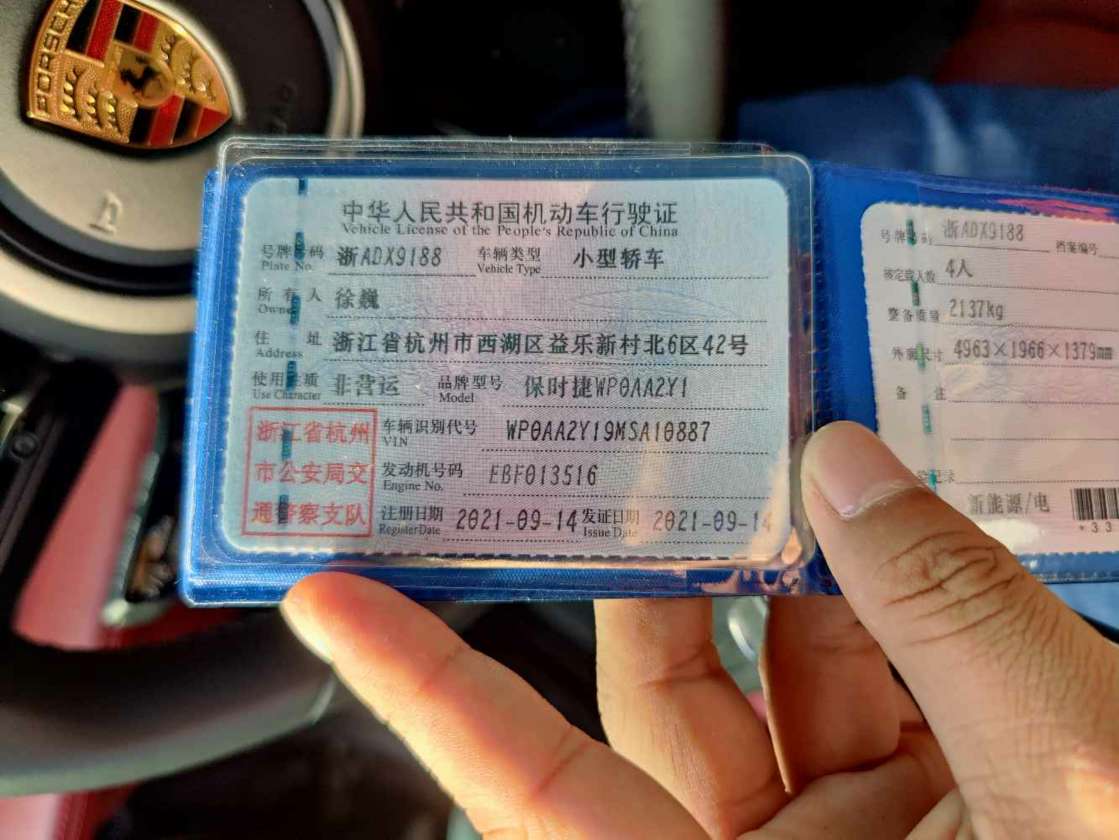 PORSCHE
中华人民共和国机动车行驶证
Vehicle License of the People's Republic of China
号牌号码 浙ADX9188 车辆类型 小型轿车
Plate No. Vehicle Type
所有人 徐巍
Owner
住址 浙江省杭州市西湖区益乐新村北6区42号
Address
使用性质 非营运 品牌型号 保时捷WP0AA2Y1
Use Character Model
浙江省杭州
市公安局交
通警察支队
车辆识别代号 WP0AA2Y19MSA10887
VIN
发动机号码 EBF013516
Engine No.
注册日期 2021-09-14 发证日期 2021-09-14
Register Date Issue Date
号牌号码 浙ADX9188 档案编号
核定载人数 4人
整备质量 2137kg
外廓尺寸 4963×1966×1379mm
备注
新能源/电